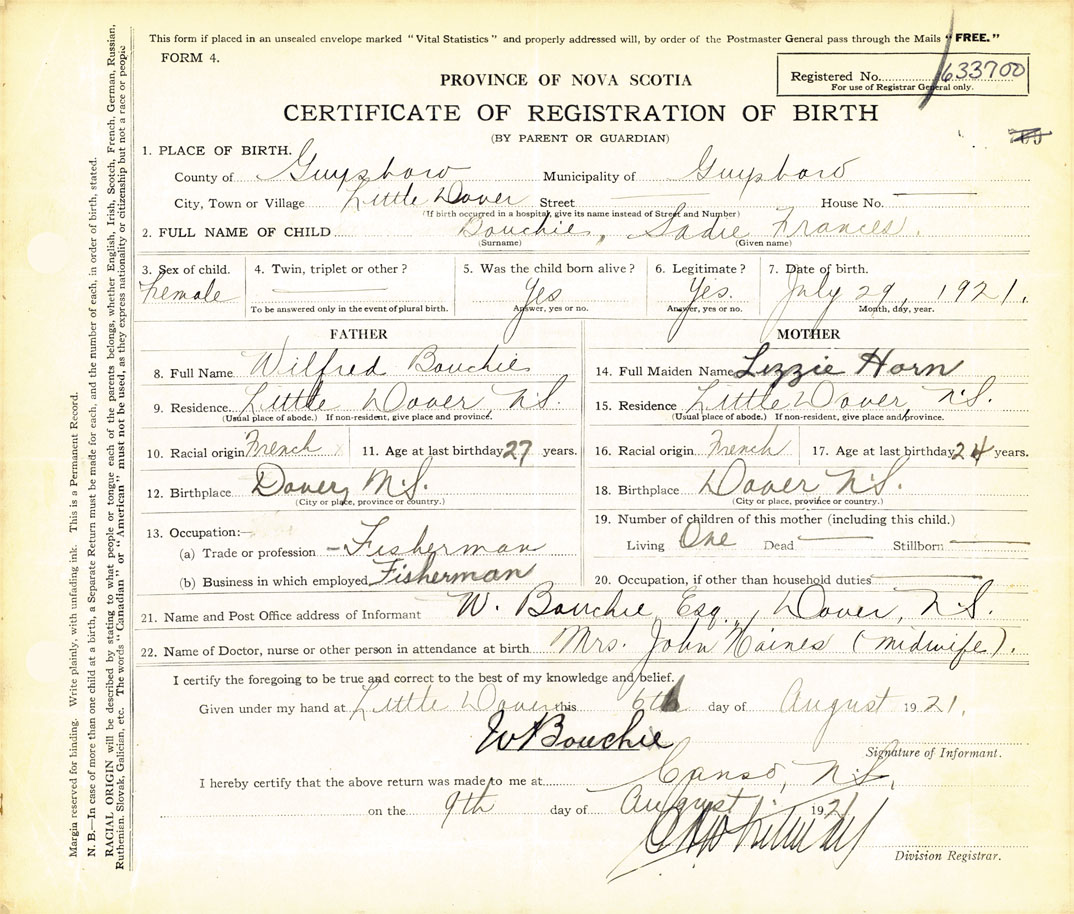 This form if placed in an unsealed envelope marked "Vital Statistics" and properly addressed will, by order of the Postmaster General pass through the Mails "FREE."
FORM 4.
Registered No. 633700
For use of Registrar General only.
PROVINCE OF NOVA SCOTIA
CERTIFICATE OF REGISTRATION OF BIRTH
(BY PARENT OR GUARDIAN)
1. PLACE OF BIRTH.
County of Guysboro Municipality of Guysboro
City, Town or Village Little Dover Street House No.
(If birth occurred in a hospital, give its name instead of Street and Number)
2. FULL NAME OF CHILD Bouchie, Sadie Frances.
(Surname) (Given name)
3. Sex of child. Female
4. Twin, triplet or other?
To be answered only in the event of plural birth.
5. Was the child born alive? Yes
Answer, yes or no.
6. Legitimate? Yes.
Answer, yes or no.
7. Date of birth. July 29, 1921.
Month, day, year.
FATHER
8. Full Name Wilfred Bouchie
9. Residence Little Dover N.S.
(Usual place of abode.) If non-resident, give place and province.
10. Racial origin French 11. Age at last birthday 27 years.
12. Birthplace Dover, N.S.
(City or place, province or country.)
13. Occupation:—
(a) Trade or profession – Fisherman
(b) Business in which employed Fisherman
MOTHER
14. Full Maiden Name Lizzie Horn
15. Residence Little Dover, N.S.
(Usual place of abode.) If non-resident, give place and province.
16. Racial origin French 17. Age at last birthday 24 years.
18. Birthplace Dover N.S.
(City or place, province or country.)
19. Number of children of this mother (including this child.)
Living One Dead Stillborn
20. Occupation, if other than household duties
21. Name and Post Office address of Informant W. Bouchie, Esq., Dover, N.S.
22. Name of Doctor, nurse or other person in attendance at birth Mrs. John Haines (midwife).
I certify the foregoing to be true and correct to the best of my knowledge and belief.
Given under my hand at Little Dover this 6th day of August 1921.
W Bouchie
Signature of Informant.
I hereby certify that the above return was made to me at Canso, N.S,
on the 9th day of August 1921
Division Registrar.
Margin reserved for binding. Write plainly, with unfading ink. This is a Permanent Record.
N. B.—In case of more than one child at a birth, a Separate Return must be made for each, and the number of each, in order of birth, stated.
RACIAL ORIGIN will be described by stating to what people or tongue each of the parents belongs, whether English, Irish, Scotch, French, German, Russian,
Ruthenian, Slovak, Galician, etc. The words "Canadian" or "American" must not be used, as they express nationality or citizenship but not a race or people